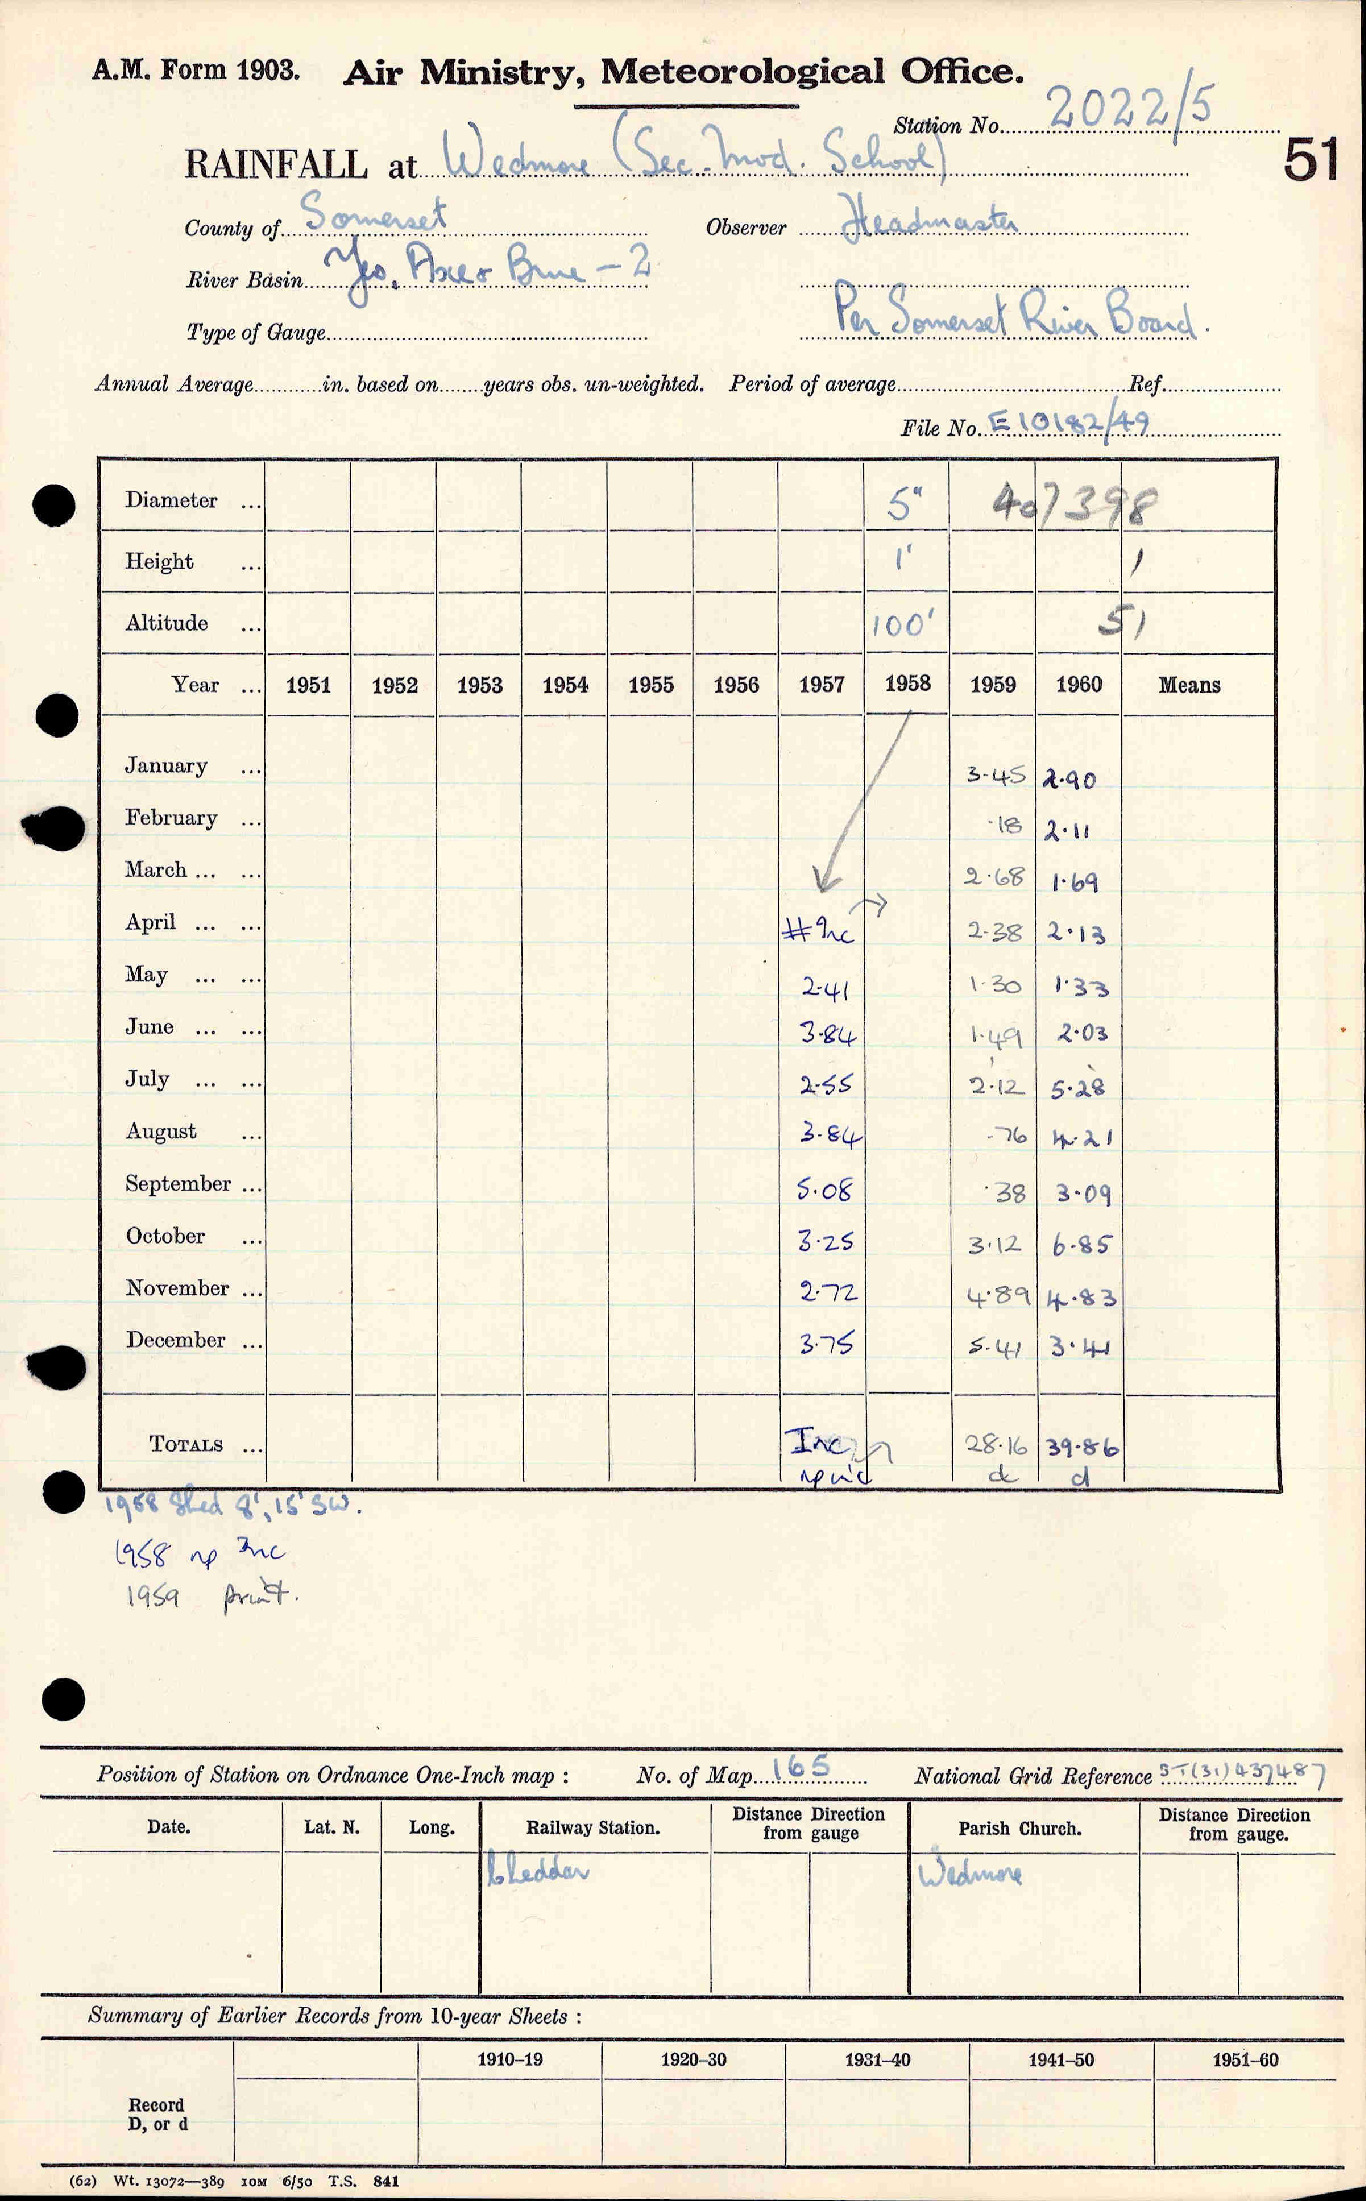 A.M. Form 1903. Air Ministry, Meteorological Office.
Station No. 2022/5
RAINFALL at Wedmore (Sec. Mod. School)
51
County of Somerset Observer Headmaster
River Basin Yeo, Axe & Brue - 2
Type of Gauge Per Somerset River Board.
Annual Average in. based on years obs. un-weighted. Period of average Ref.
File No. E10182/49
Diameter ... 5" 407398
Height ... 1' 1
Altitude ... 100' 51
Year ... 1951 1952 1953 1954 1955 1956 1957 1958 1959 1960 Means
January ... 3.45 2.90
February ... .18 2.11
March ... ... 2.68 1.69
April ... ... # Inc 2.38 2.13
May ... ... 2.41 1.30 1.33
June ... ... 3.84 1.49 2.03
July ... ... 2.55 2.12 5.28
August ... 3.84 .76 4.21
September ... 5.08 .38 3.09
October ... 3.25 3.12 6.85
November ... 2.72 4.89 4.83
December ... 3.75 5.41 3.41
TOTALS ... Inc 28.16 39.86
d d
1958 Shed 8', 15' SW.
1958 np Inc
1959 print.
Position of Station on Ordnance One-Inch map : No. of Map 165 National Grid Reference ST(31)437487
Date. Lat. N. Long. Railway Station. Distance Direction from gauge Parish Church. Distance Direction from gauge.
Cheddar Wedmore
Summary of Earlier Records from 10-year Sheets :
1910–19 1920–30 1931–40 1941–50 1951–60
Record
D, or d
(62) Wt. 13072—389 10M 6/50 T.S. 841